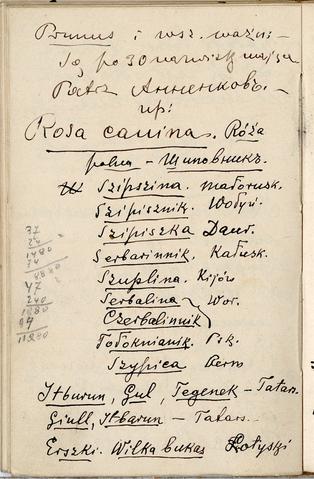 Prunus i wsz. ważn:—
Są po 30 nazwisk mają
Patrz Анненковъ.—
np:
Rosa canina. Róża
polna — Шиповникъ.
Szipszina. małorusk.
Szipisznik. Wołyń.
Szipiszka Daur.
Serbarinnik. Kałusk.
Szuplina. Kijów
Serbalina Wor.
Czerbalinnik
Gołoknianik. Pik.
Szypica Perm
Itburun, Gul, Tegenek — Tatars.
Giull, Itbarun — Tatars.
Erszki. Wilka bukas Łotyszi
37
24
1480
74
8880
47
240
1880
94
11280